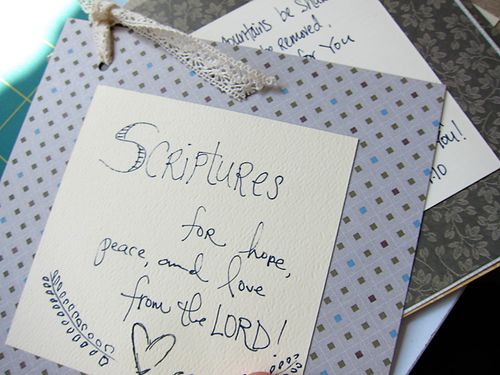 SCRIPTURES
for hope,
peace, and love
from the LORD!
ountains be
be removed,
for You
You!
:10